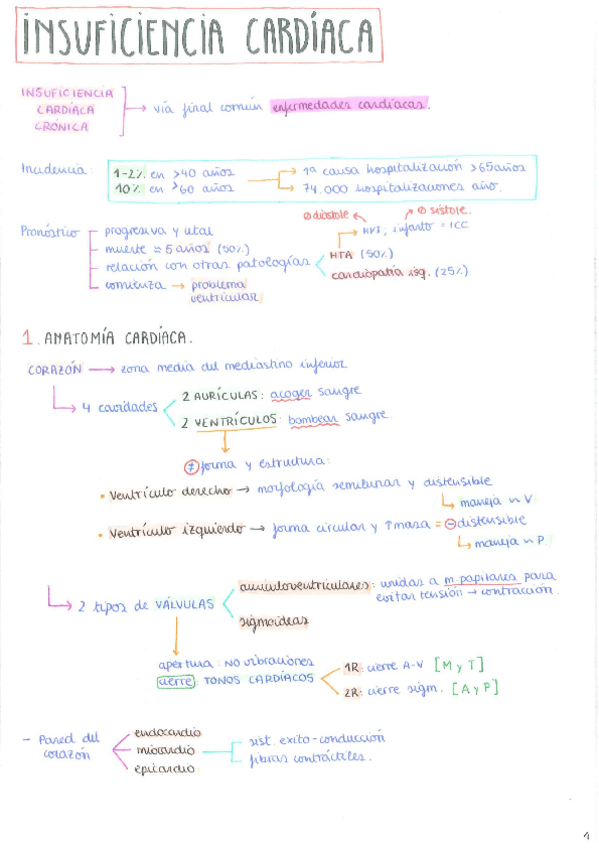 INSUFICIENCIA CARDÍACA
INSUFICIENCIA
CARDÍACA
CRÓNICA
→ vía final común enfermedades cardíacas.
Incidencia:
1-2% en >40 años → 1ª causa hospitalización >65 años
10% en >60 años → 74.000 hospitalizaciones año.
Ø diástole Ø sístole.
HVI, infarto = ICC
Pronóstico
progresiva y letal
muerte ≈ 5 años (50%)
relación con otras patologías
HTA (50%)
cardiopatía isq. (25%)
comienza → problema
ventricular
1. ANATOMÍA CARDÍACA.
CORAZÓN → zona media del mediastino inferior
4 cavidades
2 AURÍCULAS: acoger sangre
2 VENTRÍCULOS: bombear sangre.
≠ forma y estructura:
• Ventrículo derecho → morfología semilunar y distensible
maneja ~ V
• Ventrículo izquierdo → forma circular y ↑ masa = ⊖ distensible
maneja ~ P.
2 tipos de VÁLVULAS
auriculoventriculares: unidas a m. papilares para
evitar tensión → contracción.
sigmoideas
apertura: NO vibraciones
cierre: TONOS CARDÍACOS
1R: cierre A-V [M y T]
2R: cierre sigm. [A y P]
- Pared del
corazón
endocardio
miocardio
epicardio
sist. exito-conducción
fibras contráctiles.
1